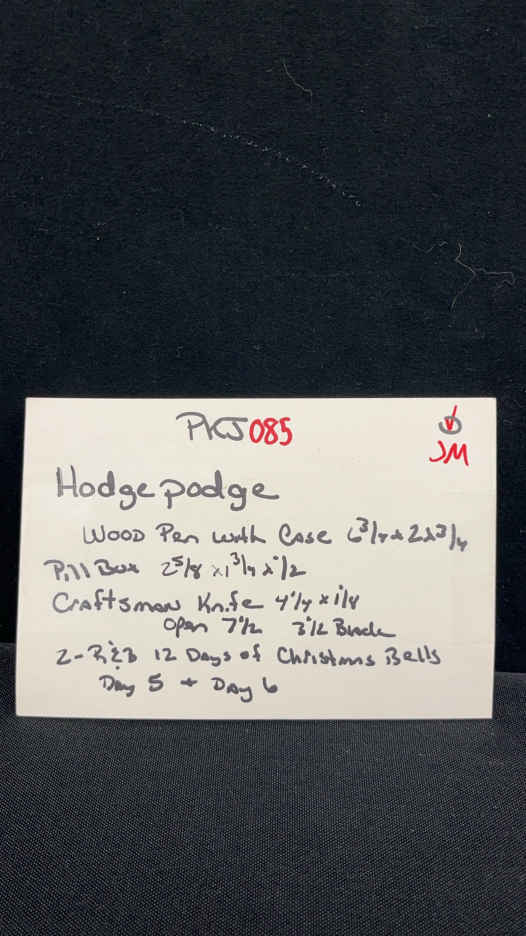 PKJ085
JM
Hodgepodge
Wood Pen with Case 6 3/4 x 2 x 3/4
Pill Box 2 5/8 x 1 3/4 x 1/2
Craftsman Knife 4 1/4 x 1 1/8
Open 7 1/2 3 1/2 Blade
2 - R&B 12 Days of Christmas Bells
Day 5 + Day 6